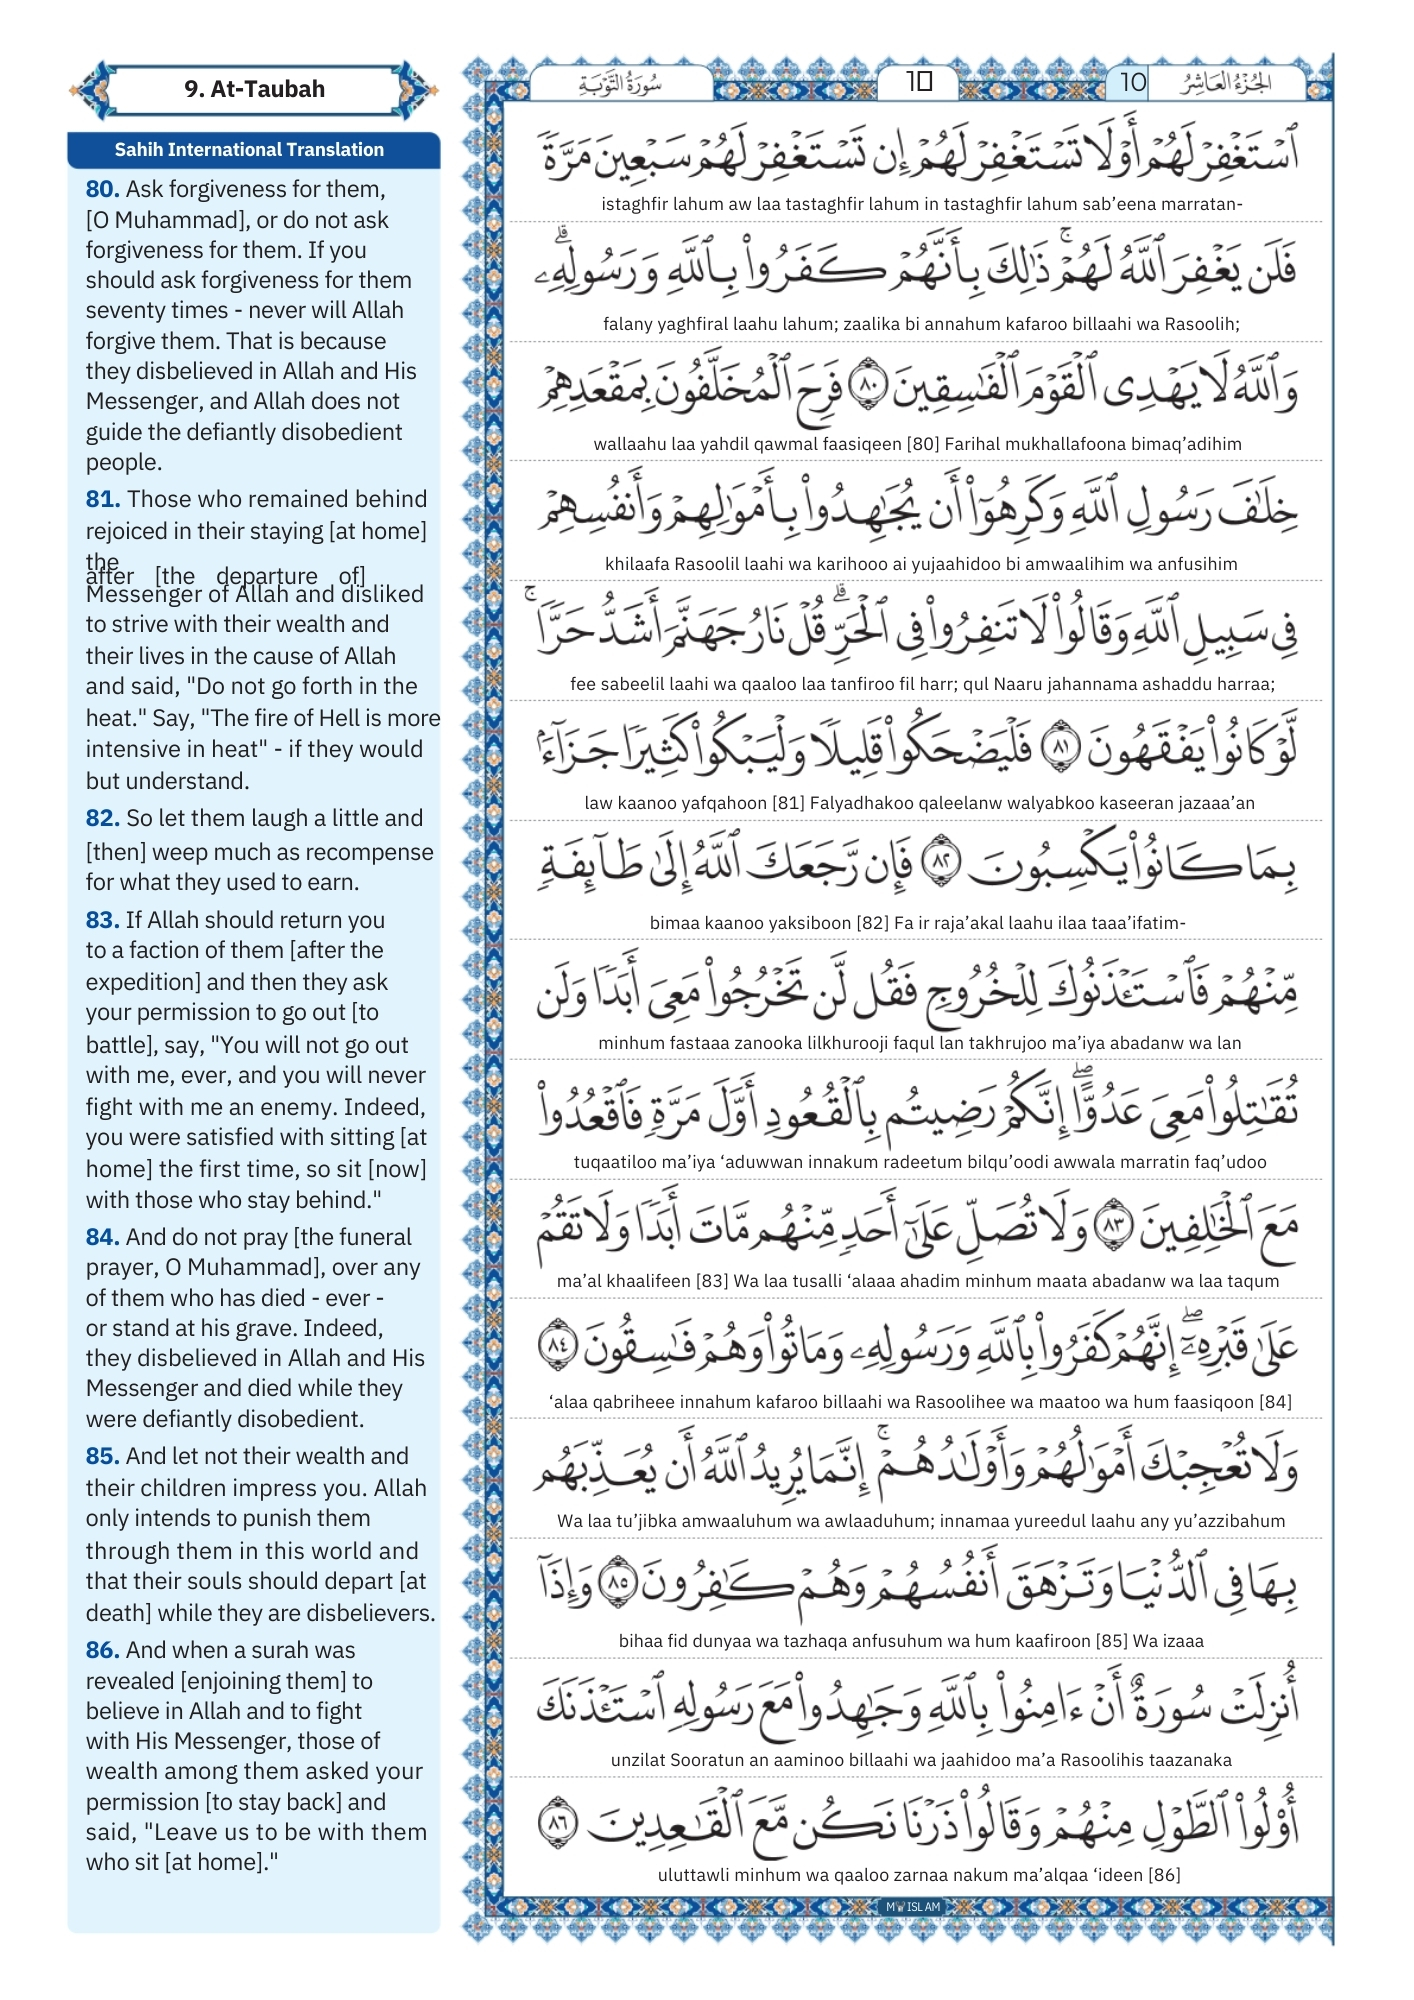 9. At-Taubah
Sahih International Translation
80. Ask forgiveness for them,
[O Muhammad], or do not ask
forgiveness for them. If you
should ask forgiveness for them
seventy times - never will Allah
forgive them. That is because
they disbelieved in Allah and His
Messenger, and Allah does not
guide the defiantly disobedient
people.
81. Those who remained behind
rejoiced in their staying [at home]
the
after [the departure of]
Messenger of Allah and disliked
to strive with their wealth and
their lives in the cause of Allah
and said, "Do not go forth in the
heat." Say, "The fire of Hell is more
intensive in heat" - if they would
but understand.
82. So let them laugh a little and
[then] weep much as recompense
for what they used to earn.
83. If Allah should return you
to a faction of them [after the
expedition] and then they ask
your permission to go out [to
battle], say, "You will not go out
with me, ever, and you will never
fight with me an enemy. Indeed,
you were satisfied with sitting [at
home] the first time, so sit [now]
with those who stay behind."
84. And do not pray [the funeral
prayer, O Muhammad], over any
of them who has died - ever -
or stand at his grave. Indeed,
they disbelieved in Allah and His
Messenger and died while they
were defiantly disobedient.
85. And let not their wealth and
their children impress you. Allah
only intends to punish them
through them in this world and
that their souls should depart [at
death] while they are disbelievers.
86. And when a surah was
revealed [enjoining them] to
believe in Allah and to fight
with His Messenger, those of
wealth among them asked your
permission [to stay back] and
said, "Leave us to be with them
who sit [at home]."
الجُزْءُ العَاشِرُ 10 10 سُورَةُ التَّوْبَةِ
ٱسْتَغْفِرْ لَهُمْ أَوْ لَا تَسْتَغْفِرْ لَهُمْ إِن تَسْتَغْفِرْ لَهُمْ سَبْعِينَ مَرَّةً
istaghfir lahum aw laa tastaghfir lahum in tastaghfir lahum sab’eena marratan-
فَلَن يَغْفِرَ ٱللَّهُ لَهُمْ ۚ ذَٰلِكَ بِأَنَّهُمْ كَفَرُوا۟ بِٱللَّهِ وَرَسُولِهِۦ ۗ
falany yaghfiral laahu lahum; zaalika bi annahum kafaroo billaahi wa Rasoolih;
وَٱللَّهُ لَا يَهْدِى ٱلْقَوْمَ ٱلْفَـٰسِقِينَ ٨٠ فَرِحَ ٱلْمُخَلَّفُونَ بِمَقْعَدِهِمْ
wallaahu laa yahdil qawmal faasiqeen [80] Farihal mukhallafoona bimaq’adihim
خِلَـٰفَ رَسُولِ ٱللَّهِ وَكَرِهُوٓا۟ أَن يُجَـٰهِدُوا۟ بِأَمْوَٰلِهِمْ وَأَنفُسِهِمْ
khilaafa Rasoolil laahi wa karihooo ai yujaahidoo bi amwaalihim wa anfusihim
فِى سَبِيلِ ٱللَّهِ وَقَالُوا۟ لَا تَنفِرُوا۟ فِى ٱلْحَرِّ ۗ قُلْ نَارُ جَهَنَّمَ أَشَدُّ حَرًّا ۚ
fee sabeelil laahi wa qaaloo laa tanfiroo fil harr; qul Naaru jahannama ashaddu harraa;
لَّوْ كَانُوا۟ يَفْقَهُونَ ٨١ فَلْيَضْحَكُوا۟ قَلِيلًا وَلْيَبْكُوا۟ كَثِيرًا جَزَآءًۢ
law kaanoo yafqahoon [81] Falyadhakoo qaleelanw walyabkoo kaseeran jazaaa’an
بِمَا كَانُوا۟ يَكْسِبُونَ ٨٢ فَإِن رَّجَعَكَ ٱللَّهُ إِلَىٰ طَآئِفَةٍ
bimaa kaanoo yaksiboon [82] Fa ir raja’akal laahu ilaa taaa’ifatim-
مِّنْهُمْ فَٱسْتَـْٔذَنُوكَ لِلْخُرُوجِ فَقُل لَّن تَخْرُجُوا۟ مَعِىَ أَبَدًا وَلَن
minhum fastaaa zanooka lilkhurooji faqul lan takhrujoo ma’iya abadanw wa lan
تُقَـٰتِلُوا۟ مَعِىَ عَدُوًّا ۖ إِنَّكُمْ رَضِيتُم بِٱلْقُعُودِ أَوَّلَ مَرَّةٍ فَٱقْعُدُوا۟
tuqaatiloo ma’iya ‘aduwwan innakum radeetum bilqu’oodi awwala marratin faq’udoo
مَعَ ٱلْخَـٰلِفِينَ ٨٣ وَلَا تُصَلِّ عَلَىٰٓ أَحَدٍ مِّنْهُم مَّاتَ أَبَدًا وَلَا تَقُمْ
ma’al khaalifeen [83] Wa laa tusalli ‘alaaa ahadim minhum maata abadanw wa laa taqum
عَلَىٰ قَبْرِهِۦٓ ۖ إِنَّهُمْ كَفَرُوا۟ بِٱللَّهِ وَرَسُولِهِۦ وَمَاتُوا۟ وَهُمْ فَـٰسِقُونَ ٨٤
‘alaa qabriheee innahum kafaroo billaahi wa Rasoolihee wa maatoo wa hum faasiqoon [84]
وَلَا تُعْجِبْكَ أَمْوَٰلُهُمْ وَأَوْلَـٰدُهُمْ ۚ إِنَّمَا يُرِيدُ ٱللَّهُ أَن يُعَذِّبَهُم
Wa laa tu’jibka amwaaluhum wa awlaaduhum; innamaa yureedul laahu any yu’azzibahum
بِهَا فِى ٱلدُّنْيَا وَتَزْهَقَ أَنفُسُهُمْ وَهُمْ كَـٰفِرُونَ ٨٥ وَإِذَآ
bihaa fid dunyaa wa tazhaqa anfusuhum wa hum kaafiroon [85] Wa izaaa
أُنزِلَتْ سُورَةٌ أَنْ ءَامِنُوا۟ بِٱللَّهِ وَجَـٰهِدُوا۟ مَعَ رَسُولِهِ ٱسْتَـْٔذَنَكَ
unzilat Sooratun an aaminoo billaahi wa jaahidoo ma’a Rasoolihis taazanaka
أُو۟لُوا۟ ٱلطَّوْلِ مِنْهُمْ وَقَالُوا۟ ذَرْنَا نَكُن مَّعَ ٱلْقَـٰعِدِينَ ٨٦
uluttawli minhum wa qaaloo zarnaa nakum ma’alqaa ‘ideen [86]
M ISLAM